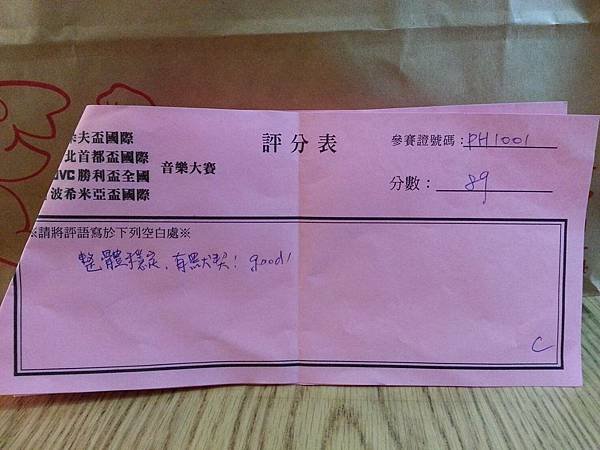 夫盃國際
北首都盃國際
JVC勝利盃全國
波希米亞盃國際
音樂大賽
評分表
參賽證號碼：PH1001
分數：89
※請將評語寫於下列空白處※
整體穩定，有默契！good！
C